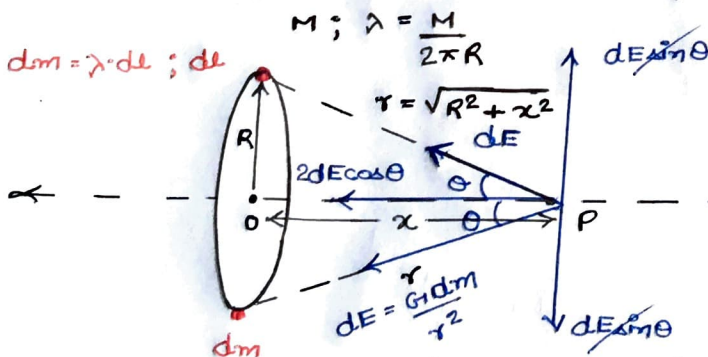 M ; λ = M / 2πR
dm = λ·dl ; dl
dE sinθ
r = √R² + x²
dE
R
2dEcosθ
θ
O
x
θ
P
r
dE = G dm / r²
dE sinθ
dm